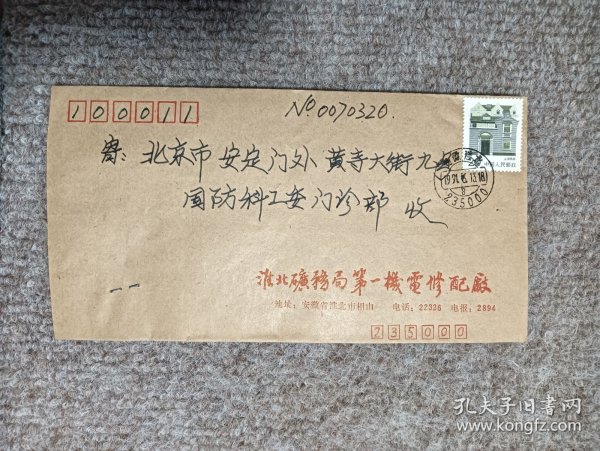 100011
No 0070320.
寄: 北京市安定门外黄寺大街九号
国防科工委门诊部 收
235000
淮北礦務局第一機電修配廠
地址: 安徽省淮北市相山 电话: 22326 电报: 2894
235000
孔夫子旧书网
www.kongfz.com